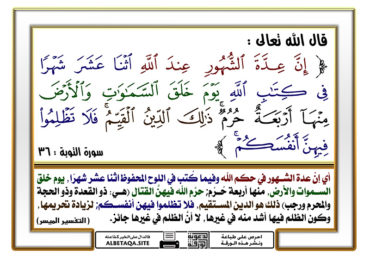 قال الله تعالى :
﴿ إِنَّ عِدَّةَ الشُّهُورِ عِندَ اللَّهِ اثْنَا عَشَرَ شَهْرًا
فِي كِتَابِ اللَّهِ يَوْمَ خَلَقَ السَّمَاوَاتِ وَالْأَرْضَ
مِنْهَا أَرْبَعَةٌ حُرُمٌ ۚ ذَٰلِكَ الدِّينُ الْقَيِّمُ ۚ فَلَا تَظْلِمُوا
فِيهِنَّ أَنفُسَكُمْ ۚ ﴾
سورة التوبة : ٣٦
أي إنَّ عدة الشهور في حكم الله وفيما كُتب في اللوح المحفوظ اثنا عشر شهرًا، يوم خلق
السموات والأرض، منها أربعة حُرُم؛ حرَّم الله فيهنَّ القتال (هي: ذو القعدة وذو الحجة
والمحرم ورجب) ذلك هو الدين المستقيم، فلا تظلموا فيهن أنفسكم؛ لزيادة تحريمها،
وكون الظلم فيها أشد منه في غيرها، لا أنَّ الظلم في غيرها جائز.
(التفسير الميسر)
احرص على طباعة
ونشر هذه الورقة
فالدال على الخير كفاعله
ALBETAQA.SITE